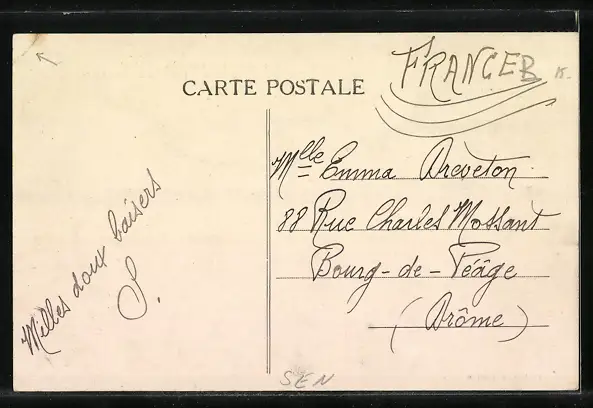 CARTE POSTALE
FRANCE
Mlle Emma Dreveton
88 Rue Charles Mossant
Bourg-de-Péâge
(Drôme)
Milles doux baisers
S.
SEN